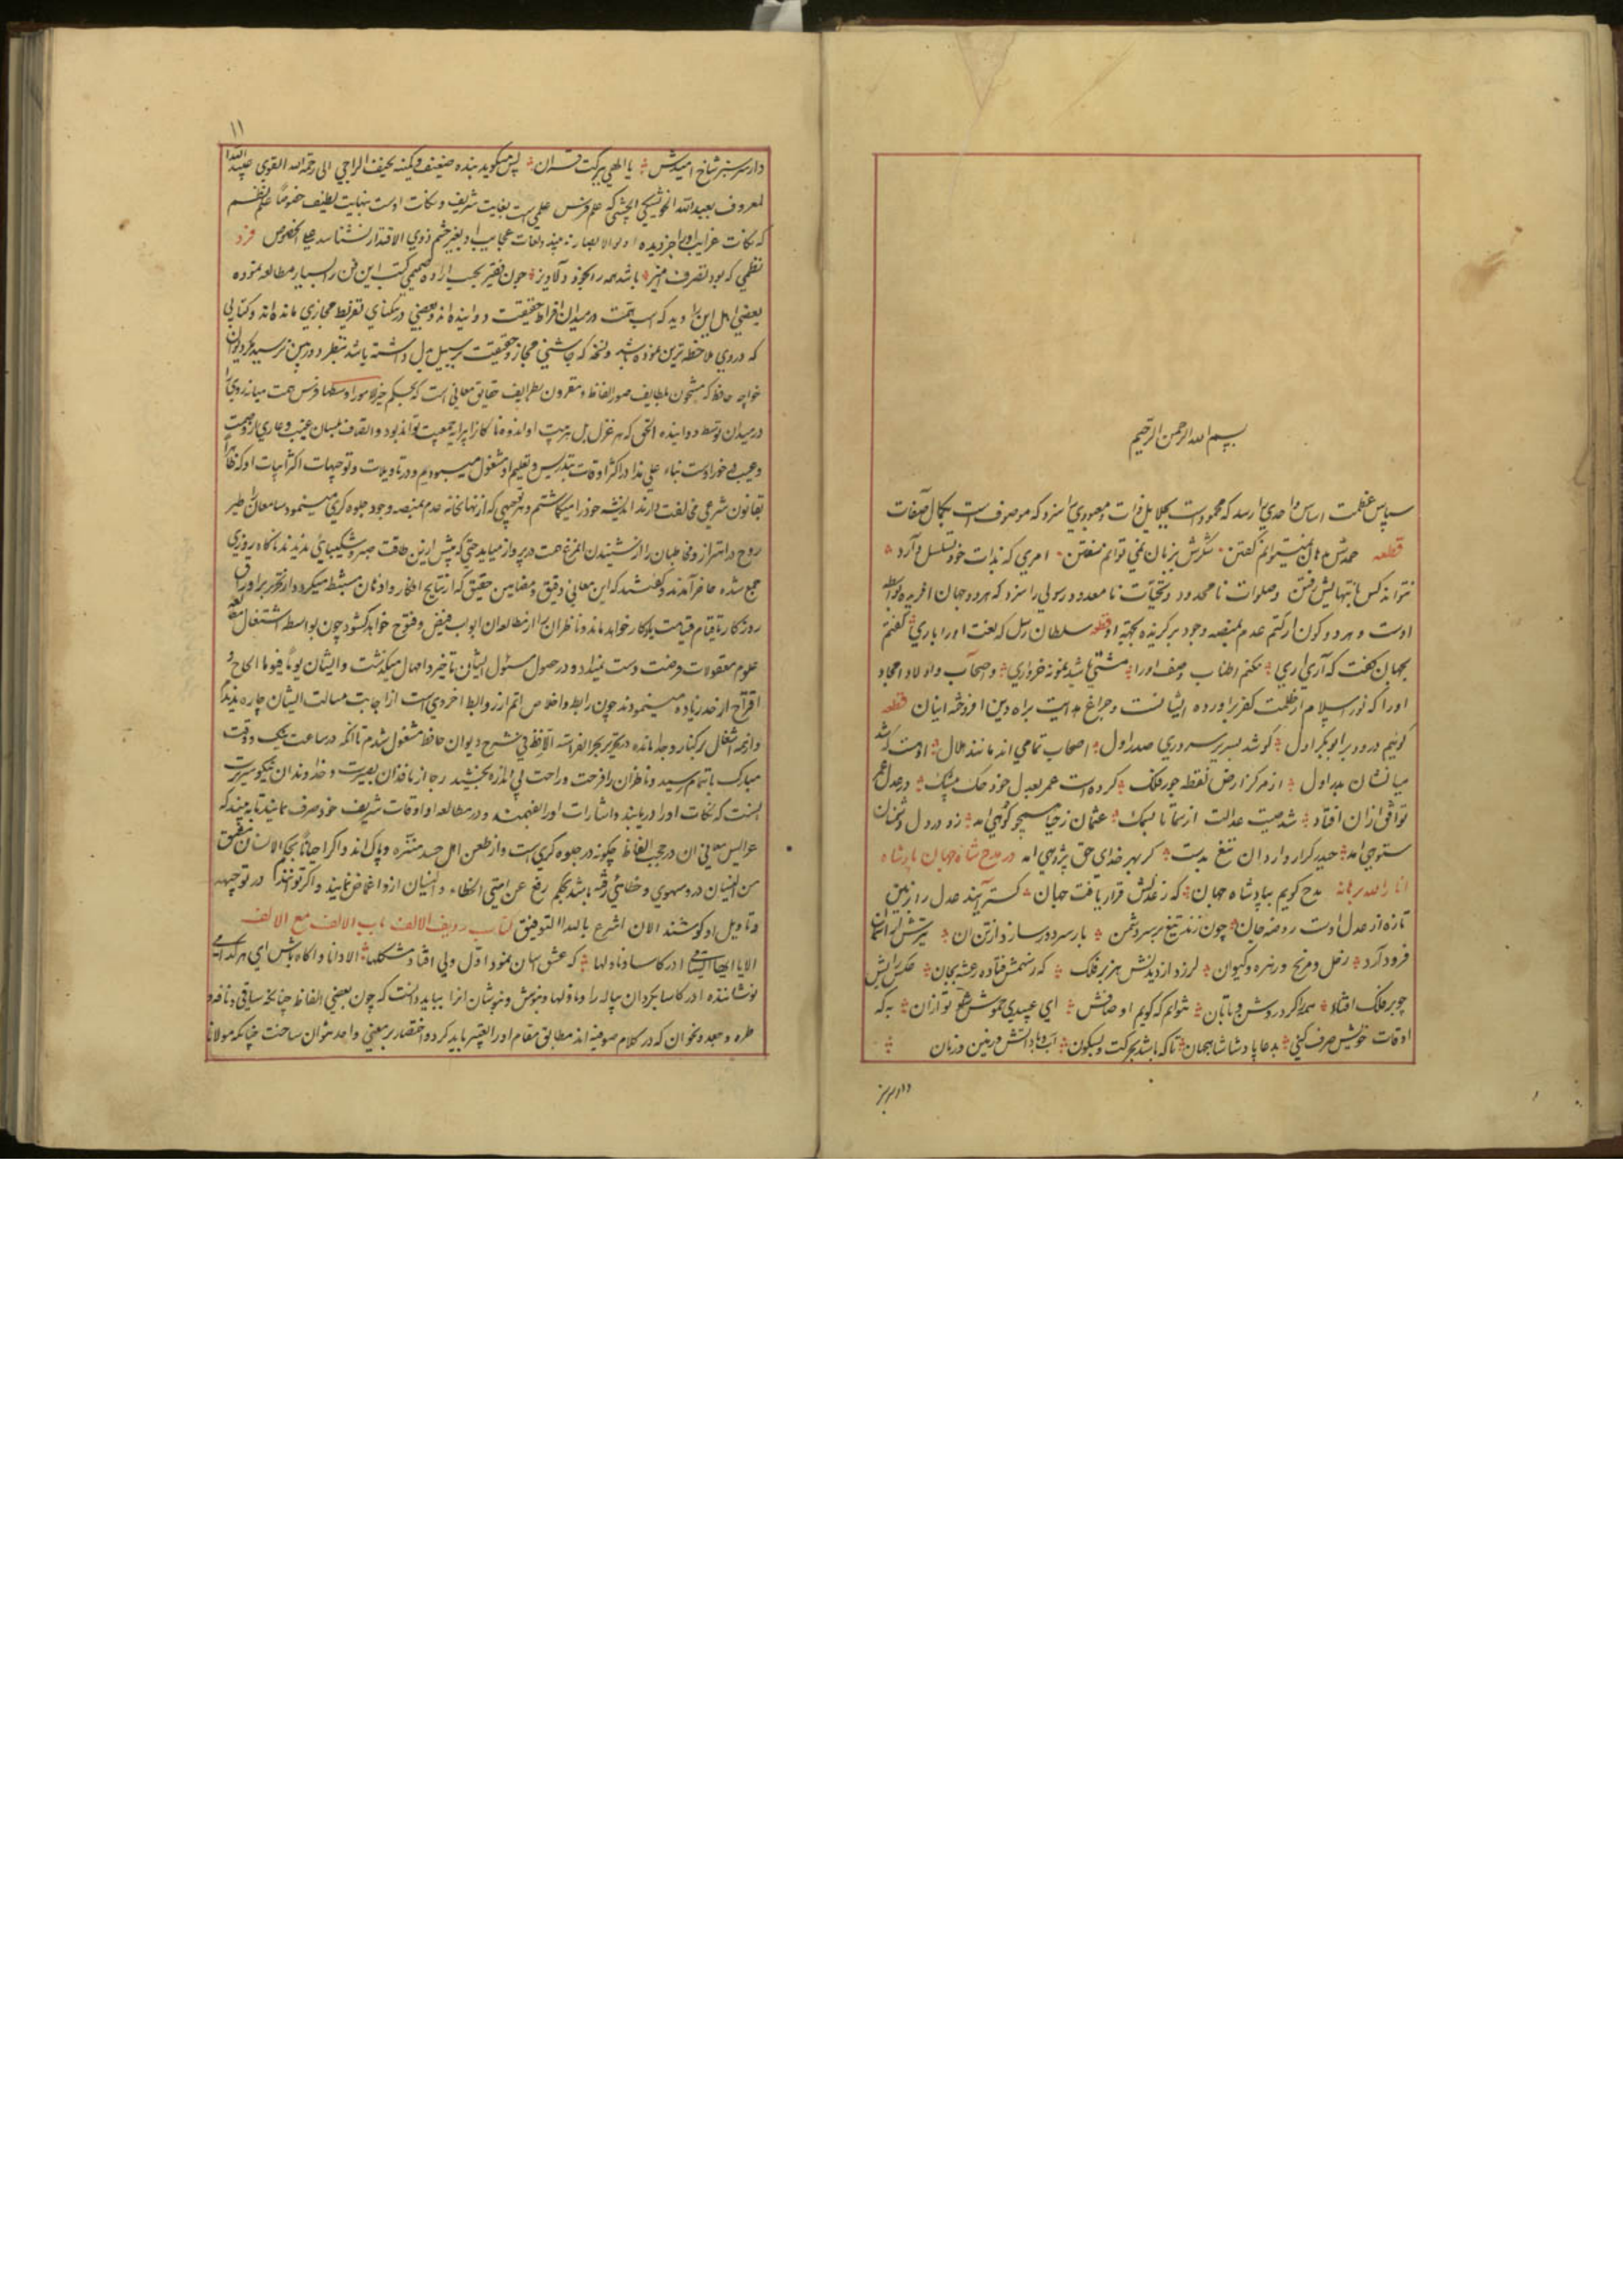 بسم الله الرحمن الرحیم
سپاس عظمت اساس واحدی را رسد که محمود است بجلایل ذات و معبودی را سزد که موصوف است بکمال صفات
قطعه حمدش نتوانم گفتن شکرش بزبان نمی توانم سفتن امری که بذات خود تسلسل دارد
نتواند کس بانتهایش رفتن و صلوات نامحدود و تحیات نامعدود رسولی را سزد که هر دو جهان افریده بواسطه
اوست و هر دو کون از کتم عدم بمنصه وجود برگزیده بجهة او قطعه سلطان رسل که نعت او را باری گفتم
بجهان گفت که آری آری نکنم اطناب وصف او را مشتی باشد نمونه خرواری و اصحاب و اولاد امجاد
او را که نور اسلام از ظلمت کفر براورده ایشانست و چراغ هدایت براه دین افروخته اینان قطعه
گوئیم درود بر ابوبکر اول کو شد بسریر سروری صدر اول اصحاب تمامی اند مانند هلال اوست که شد
میانشان بدر اول از مرکز ارض نقطه جور فلک کرده است عمر بعدل خود حک
توافق ازان افتاد شد صیت عدالت از سما تا بسمک عثمان ز حیا
حیدر کرار در مدح شاه جهان پادشاه
انار الله برهانه مدح گویم بپادشاه جهان که ز عدلش قرار یافت جهان
تازه از عدل اوست روضه جان چون زند تیغ بر سر دشمن بار سر دور سازد از تن ان
فرود آرد زحل و مریخ و زهره و کیوان لرزد از دیدنش هزبر فلک
چو بر فلک افتاد نتوانم که گویم اوصافش ای عبیدی خموش شو تو ازان به که
اوقات خویش صرف کنی بدعا پادشا شاهجهان تا که باشد بحرکت و بسکون آب و باد آتش و زمین و زمان
دار سرسبز
۱۱
دار سرسبز شاخ امیدش یا الهی ببرکت قران پس میگوید بنده ضعیف و کمینه نحیف الراجی الی رحمة الله القوی عبید الله
المعروف بعبد الله الخویشگی الچشتی که علم فرس علمی است بغایت شریف و نکات اوست بنهایت لطیف خصوصا علم نظم
که نکات غرایب او را جز دیده اولوالابصار نه بیند و لغات عجایب او بغیر چشم ذوی الاقتدار نشناسد علی الخصوص فرد
نظمی که بود تصرف آمیز باشد همه دلاویز چون فقیر بحسب اراده صمیمی کتب این فن را بسیار مطالعه نموده
بعضی اهل این را دید که اسب همت در میدان افراط حقیقت دوانیده اند و بعضی در تنکنای تفریط مجازی مانده اند و کتابی
که در وی ملاحظه
خواجه حافظ که مشحون بلطایف صور الفاظ و مقرون بطرایف حقایق معانی است که بحکم خیر الامور اوسطها فرس همت میانه روی را
در میدان توسط دوانیده الحق که هر غزل بل هر بیت او
بناء علی هذا در اکثر اوقات بتدریس و تعلیم او مشغول میبودیم و در تاویلات و توجیهات اکثر ابیات او که ظاهرا
بقانون شرعی مخالفت دارند اندیشه خود را میگماشتم و هر توجیهی که از نهانخانه عدم بمنصه وجود جلوه گری مینمود سامعان را طیر
روح در اهتزاز و مخاطبان را از شنیدن ان مرغ همت در پرواز میامد حتی که پیش ازین طاقت صبر و شکیبائی ندیدند ناگاه روزی
جمع شده حاضر آمدند و گفتند که این معانی دقیق و مضامین حقیق که از نتایج افکار و اذهان مستنبط میکردد از تحریر بر اوراق
روزگار تا قیام قیامت یادگار خواهد ماند و ناظران را از مطالعه ان ابواب فیض و فتوح خواهد گشود چون بواسطه اشتغال
علوم معقولات فرصت دست نمیداد و در حصول مسئول ایشان بتاخیر و امهال میگذشت و ایشان یوما فیوما الحاح و
اقتراح از حد زیاده مینمودند چون رابطه اخلاص اتم از روابط اخروی است از اجابت مسالت ایشان چاره ندیدم
و از همه اشغال برکنار و جدا مانده در تحریر بحر الفراسة اللافظ فی شرح دیوان حافظ مشغول شدم تا انکه در ساعت نیک و وقت
مبارک باتمام رسید و ناظران را فرحت و راحت بی اندازه بخشید رجا از ناقدان بصیرت و خداوندان نیکو سیرت
انست که نکات او را دریابند و اشارات او را بفهمند و در مطالعه او اوقات شریف خود صرف نمایند تا به بینند که
عرایس معانی ان در حجب الفاظ چگونه در جلوه گری است و از طعن اهل حسد منزه و پاک اند و اگر احیانا بحکم الانسان مشتق
من النسیان در و سهوی و خطائی رفته باشد بحکم رفع عن امتی الخطاء و النسیان ازو اغماض نمایند و اگر توانند در توجیهه
و تاویل او کوشند الان اشرع بالله التوفیق کتاب ردیف الالف باب الالف مع الالف
الا یا ایها الساقی ادر کاسا و ناولها که عشق اسان نمود اول ولی افتاد مشکلها الا دانا و اگاه باش ای
نوشاننده ادر کاسا بگردان پیاله را و ناولها و بنوش و بنوشان انرا بباید دانست که چون بعضی الفاظ چنانچه ساقی و نافه و
طره و جعد و نحو ان که در کلام صوفیه اند مطابق مقام او را تفسیر باید کرد و اختصار بر معنی واحد نتوان ساخت چنانکه مولانا